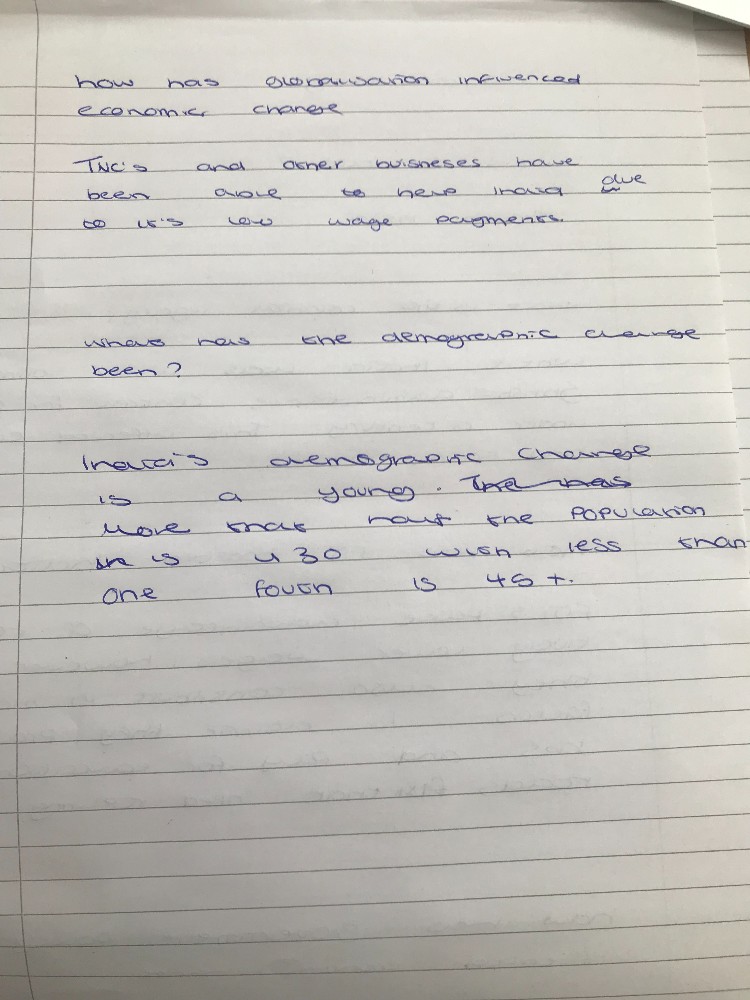 how has globalisation influenced
economic change
TNC's and other buisneses have
been able to help India due
to it's low wage payments.
what has the demographic change
been?
India's demographic change
is a young. The has
More that half the POPULATION
in is u30 with less than
one fouth is 45+.